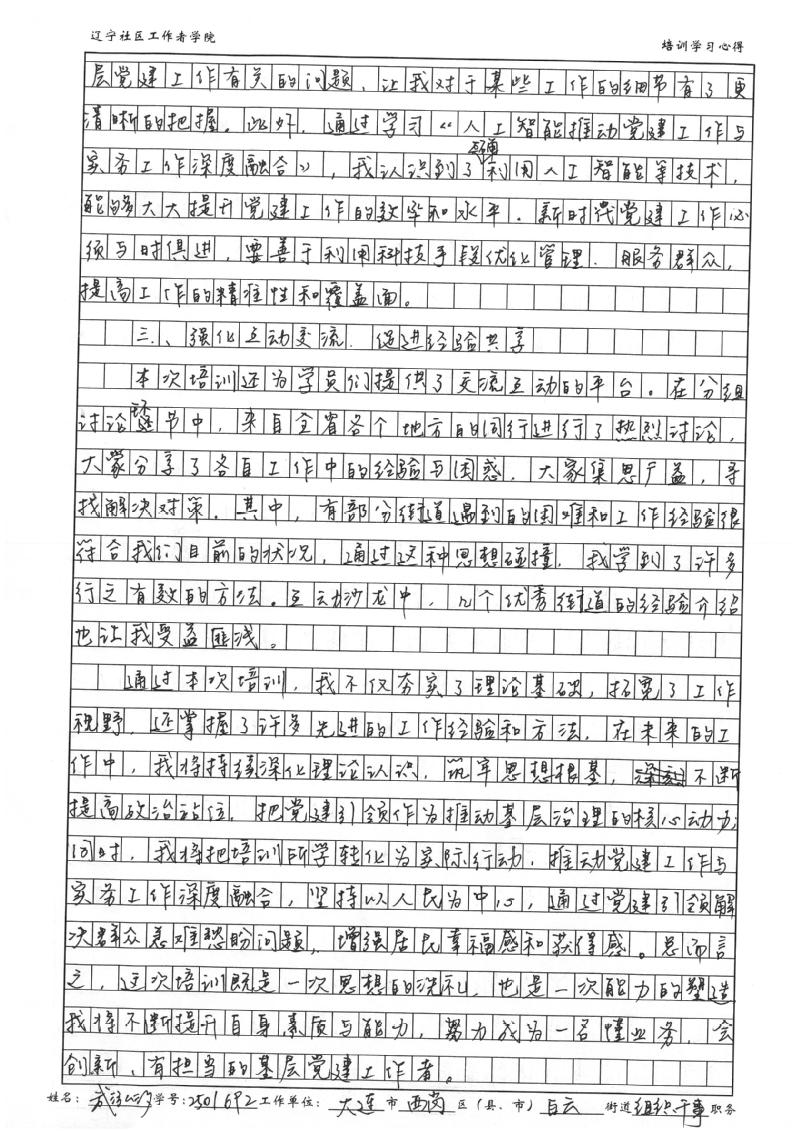 辽宁社区工作者学院 培训学习心得
层党建工作有关的问题，让我对于某些工作的细节有了更
清晰的把握。此外，通过学习《人工智能推动党建工作与
实务工作深度融合》，我认识到了利用人工智能等技术，
能够大大提升党建工作的效率和水平。新时代党建工作必
须与时俱进，要善于利用科技手段优化管理、服务群众，
提高工作的精准性和覆盖面。
三、强化互动交流，促进经验共享
本次培训还为学员们提供了交流互动的平台。在分组
讨论环节中，来自全省各个地方的同行进行了热烈讨论，
大家分享了各自工作中的经验与困惑，大家集思广益，寻
找解决对策。其中，有部分街道遇到的困难和工作经验很
符合我们目前的状况，通过这种思想碰撞，我学到了许多
行之有效的方法。互动沙龙中，几个优秀街道的经验介绍
也让我受益匪浅。
通过本次培训，我不仅夯实了理论基础，拓宽了工作
视野，还掌握了许多先进的工作经验和方法。在未来的工
作中，我将持续深化理论认识，筑牢思想根基，不断
提高政治站位，把党建引领作为推动基层治理的核心动力；
同时，我将把培训所学转化为实际行动，推动党建工作与
实务工作深度融合，坚持以人民为中心，通过党建引领解
决群众急难愁盼问题，增强居民幸福感和获得感。总而言
之，这次培训既是一次思想的洗礼，也是一次能力的塑造
我将不断提升自身素质与能力，努力成为一名懂业务、会
创新、有担当的基层党建工作者。
姓名： 学号：2501692 工作单位： 大连 市 西岗 区（县、市） 白云 街道 组织干事 职务